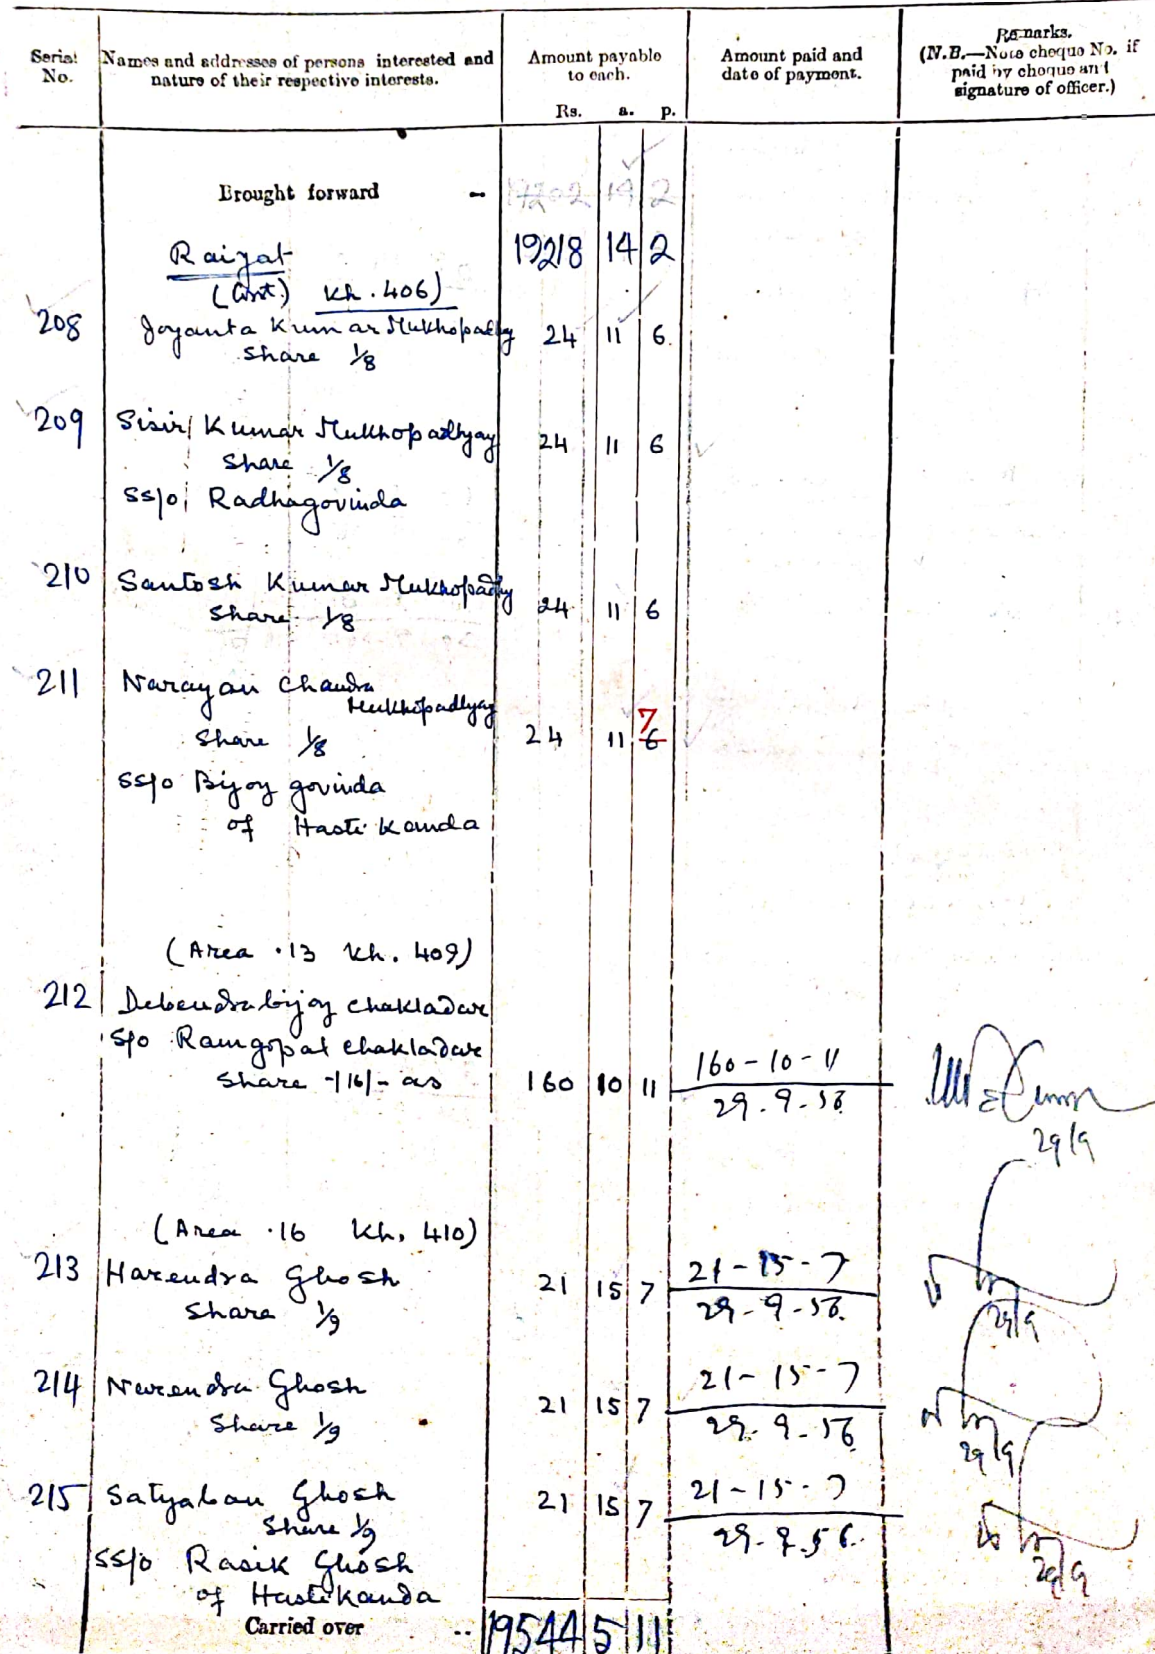 Serial No.
Names and addresses of persons interested and nature of their respective interests.
Amount payable to each.
Rs. a. p.
Amount paid and date of payment.
Remarks.
(N.B.—Note cheque No. if paid by cheque and signature of officer.)
Brought forward -- 17202 14 2
19218 14 2
Raiyat
(Cont.) Kh. 406)
208 Joyanta Kumar Mukhopadhy 24 11 6.
Share 1/8
209 Sisir Kumar Mukhopadhyay 24 11 6
Share 1/8
SS/o Radhagovinda
210 Santosh Kumar Mukhopadhy 24 11 6
Share 1/8
211 Narayan Chandra
Mukhopadhyay
Share 1/8 24 11 6 7
SS/o Bijoy govinda
of Hasti Kanda
(Area .13 Kh. 409)
212 Debendrabijoy Chakladar
S/o Ramgopal Chakladar
Share -/16/- as 160 10 11 160-10-11
29.9.56
29/9
(Area .16 Kh. 410)
213 Harendra Ghosh 21 15 7 21-15-7
Share 1/9 29-9-56.
29/9
214 Narendra Ghosh 21 15 7 21-15-7
Share 1/9 29.9.56
29/9
215 Satyaban Ghosh 21 15 7 21-15-7
Share 1/9 29.9.56.
29/9
SS/o Rasik Ghosh
of Hasti Kanda
Carried over -- 19544 5 11